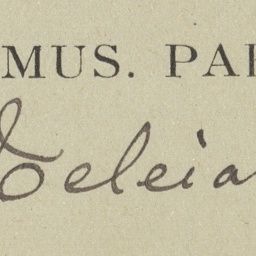 MUS. PAR
Teleia